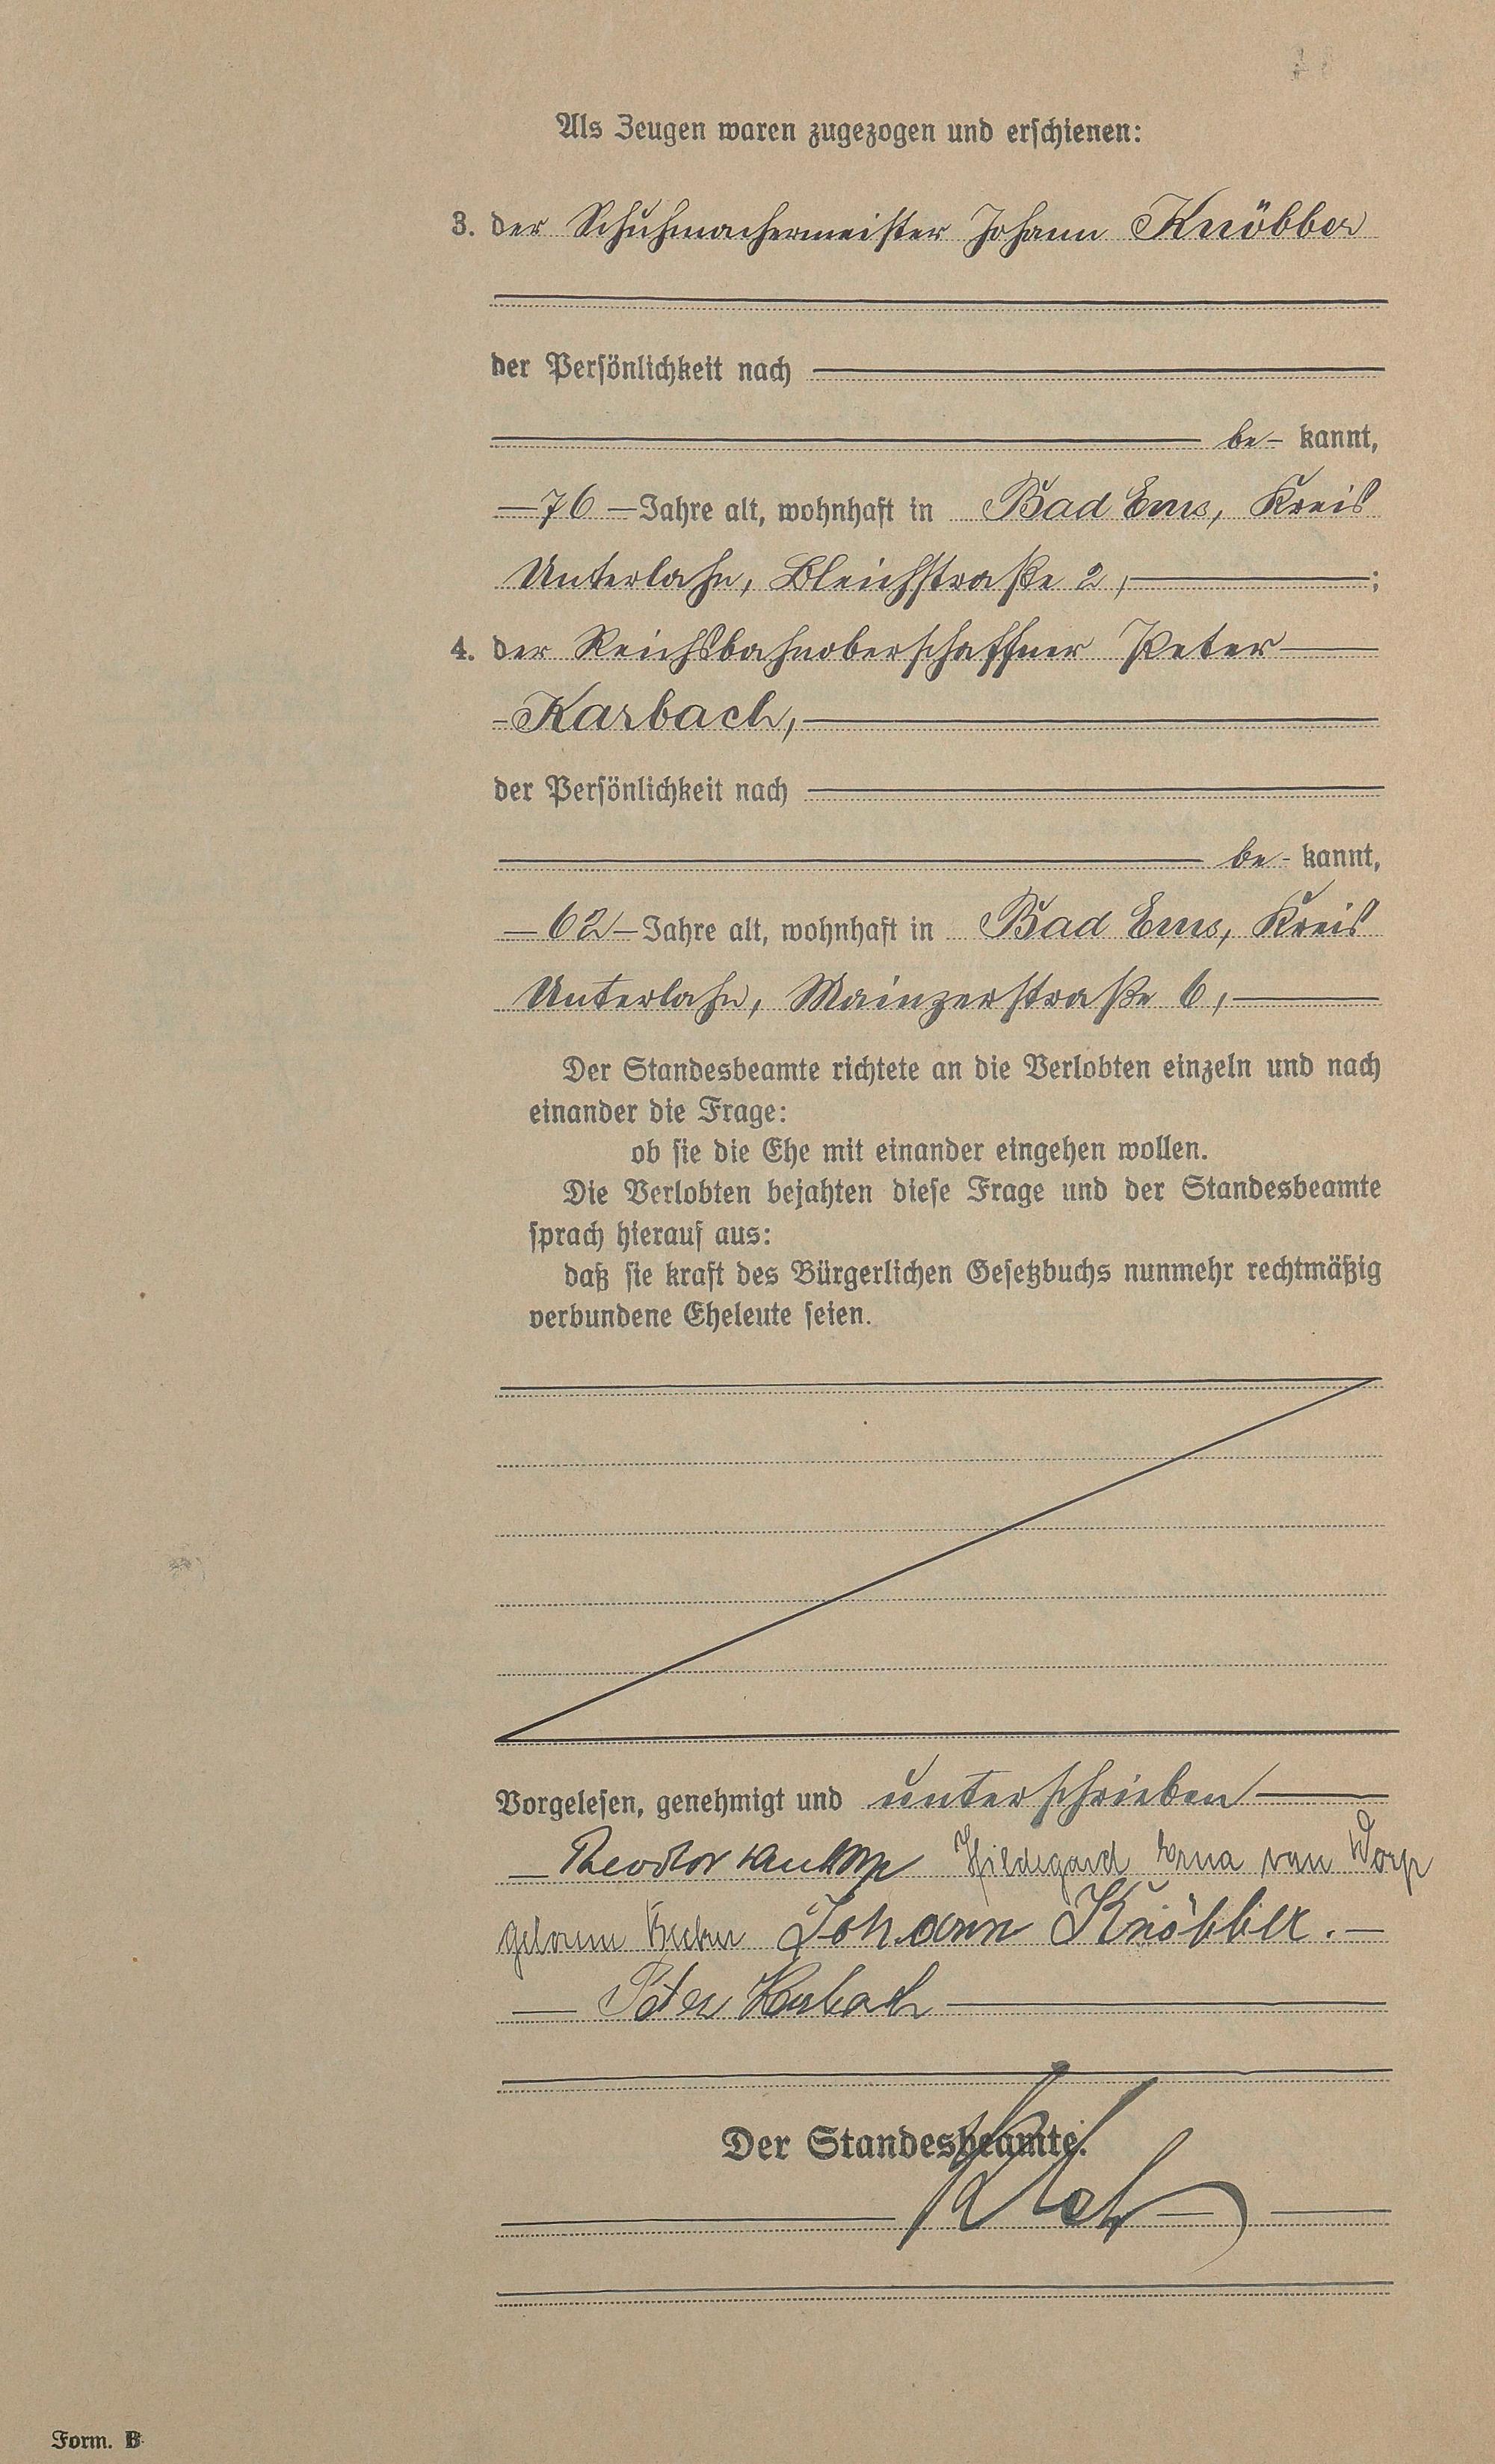 Als Zeugen waren zugezogen und erschienen:
3. der Schuhmachermeister Johann Knöbber
der Persönlichkeit nach
be- kannt,
76 Jahre alt, wohnhaft in Bad Ems, Kreis
Unterlahn, Bleichstraße 2, ;
4. der Reichsbahnoberschaffner Peter
Karbach,
der Persönlichkeit nach
be- kannt,
62 Jahre alt, wohnhaft in Bad Ems, Kreis
Unterlahn, Mainzerstraße 6,
Der Standesbeamte richtete an die Verlobten einzeln und nach
einander die Frage:
ob sie die Ehe mit einander eingehen wollen.
Die Verlobten bejahten diese Frage und der Standesbeamte
sprach hierauf aus:
daß sie kraft des Bürgerlichen Gesetzbuchs nunmehr rechtmäßig
verbundene Eheleute seien.
Vorgelesen, genehmigt und unterschrieben
Theodor Hildegard Erna van Dorp
geborene Johann Knöbber.
Peter Karbach
Der Standesbeamte.
Form. B